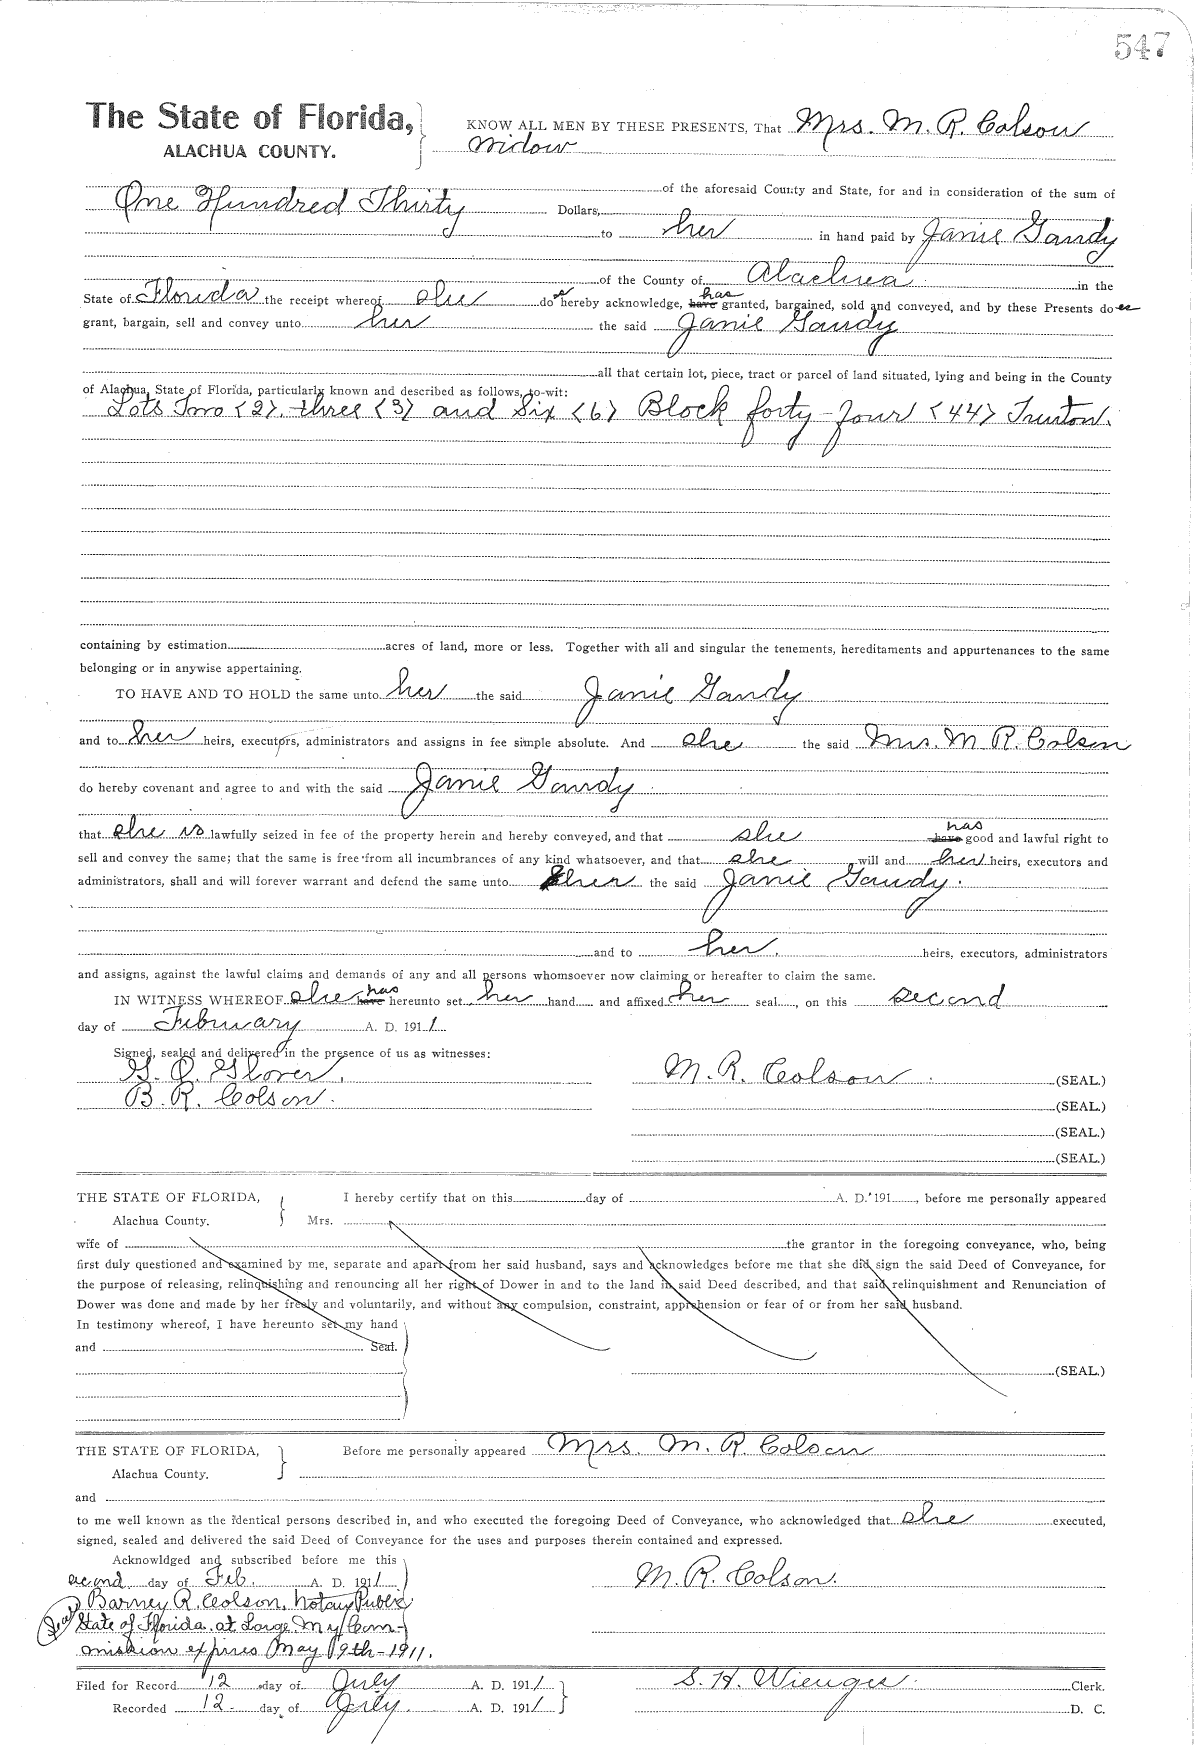 547
The State of Florida, KNOW ALL MEN BY THESE PRESENTS, That Mrs. M. R. Colson
ALACHUA COUNTY. Widow
of the aforesaid County and State, for and in consideration of the sum of
One Hundred Thirty Dollars,
to her in hand paid by Janie Gandy
of the County of Alachua in the
State of Florida the receipt whereof she does hereby acknowledge, have has granted, bargained, sold and conveyed, and by these Presents does
grant, bargain, sell and convey unto her the said Janie Gandy
all that certain lot, piece, tract or parcel of land situated, lying and being in the County
of Alachua, State of Florida, particularly known and described as follows, to-wit:
Lots Two <2>, three <3> and Six <6> Block forty-four <44> Trenton.
containing by estimation acres of land, more or less. Together with all and singular the tenements, hereditaments and appurtenances to the same
belonging or in anywise appertaining.
TO HAVE AND TO HOLD the same unto her the said Janie Gandy
and to her heirs, executors, administrators and assigns in fee simple absolute. And she the said Mrs. M R. Colson
do hereby covenant and agree to and with the said Janie Gandy
that she is lawfully seized in fee of the property herein and hereby conveyed, and that she have has good and lawful right to
sell and convey the same; that the same is free from all incumbrances of any kind whatsoever, and that she will and her heirs, executors and
administrators, shall and will forever warrant and defend the same unto her the said Janie Gandy.
and to her. heirs, executors, administrators
and assigns, against the lawful claims and demands of any and all persons whomsoever now claiming or hereafter to claim the same.
IN WITNESS WHEREOF she have has hereunto set her hand and affixed her seal, on this second
day of February A. D. 1911.
Signed, sealed and delivered in the presence of us as witnesses:
Glover. M. R. Colson. (SEAL.)
B. R. Colson. (SEAL.)
(SEAL.)
(SEAL.)
THE STATE OF FLORIDA, I hereby certify that on this day of A. D. 191 , before me personally appeared
Alachua County. Mrs.
wife of the grantor in the foregoing conveyance, who, being
first duly questioned and examined by me, separate and apart from her said husband, says and acknowledges before me that she did sign the said Deed of Conveyance, for
the purpose of releasing, relinquishing and renouncing all her right of Dower in and to the land in said Deed described, and that said relinquishment and Renunciation of
Dower was done and made by her freely and voluntarily, and without any compulsion, constraint, apprehension or fear of or from her said husband.
In testimony whereof, I have hereunto set my hand
and Seal.
(SEAL.)
THE STATE OF FLORIDA, Before me personally appeared Mrs. M. R. Colson
Alachua County.
and
to me well known as the identical persons described in, and who executed the foregoing Deed of Conveyance, who acknowledged that she executed,
signed, sealed and delivered the said Deed of Conveyance for the uses and purposes therein contained and expressed.
Acknowldged and subscribed before me this
second day of Feb. A. D. 1911. M. R. Colson.
Barney R. Colson, Notary Public
Seal State of Florida at Large. My Com-
mission expires May 19th-1911.
Filed for Record 12 day of July A. D. 1911 S. H. Wienges. Clerk.
Recorded 12 day of July. A. D. 1911 D. C.